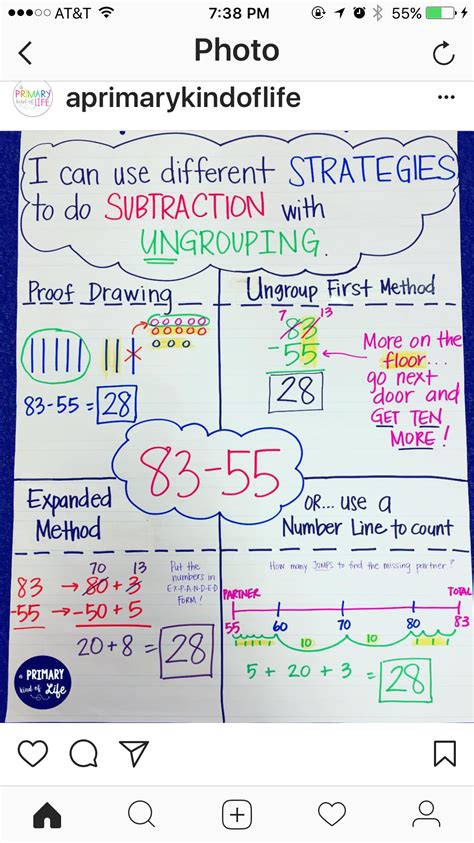 AT&T 7:38 PM 55%
Photo
PRIMARY
kind of LIFE
aprimarykindoflife
I can use different STRATEGIES
to do SUBTRACTION with
UNGROUPING.
Proof Drawing
83-55 = 28
Ungroup First Method
7 13
83
-55
28
More on the
floor...
go next
door and
GET TEN
MORE!
83-55
Expanded
Method
70 13
83 → 80 + 3
-55 → -50 + 5
20 + 8 = 28
Put the
numbers in
E-X-P-A-N-D-E-D
FORM!
a PRIMARY
kind of Life
OR... use a
Number Line to count
How many JUMPS to find the missing partner?
PARTNER TOTAL
55 60 70 80 83
10 10
5 + 20 + 3 = 28